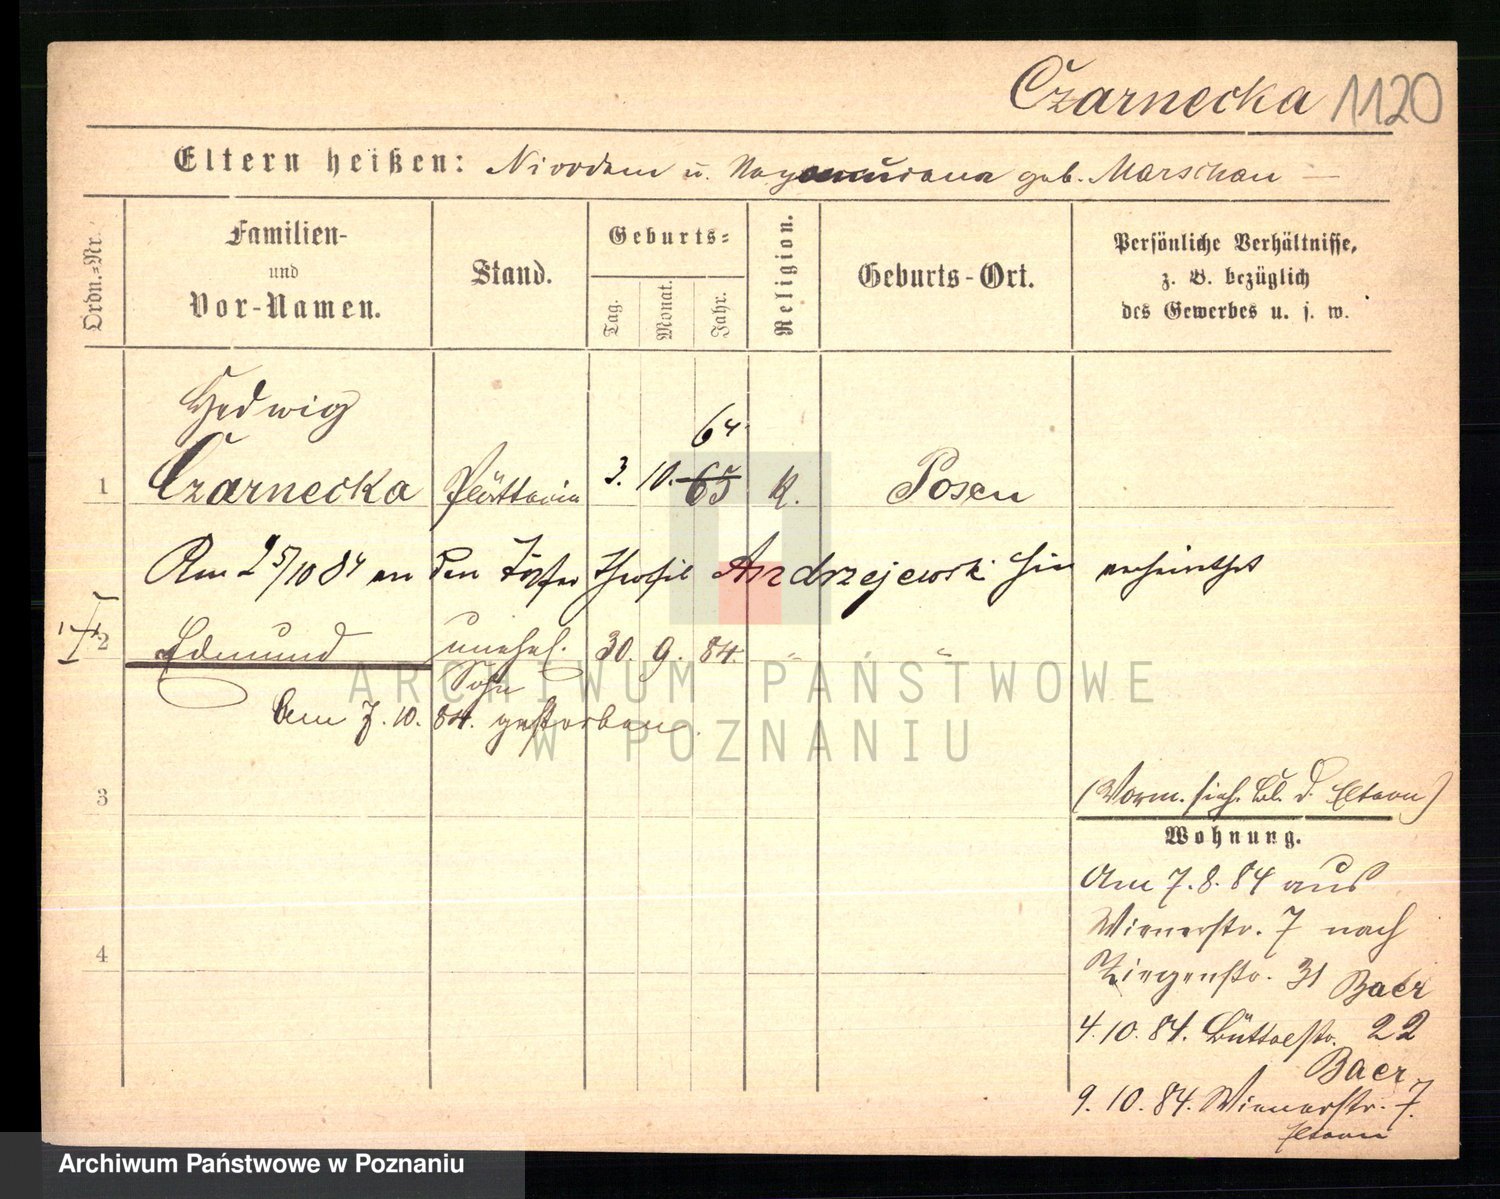 Czarnecka 1120
Eltern heißen: u. geb. Marschau
Ordn.=Nr.
Familien-
und
Vor-Namen.
Stand.
Geburts=
Tag.
Monat.
Jahr.
Religion.
Geburts-Ort.
Persönliche Verhältnisse,
z. B. bezüglich
des Gewerbes u. s. w.
Hedwig
64
1 Czarnecka Plätterin 3. 10. 65 K. Posen
Am 25/10 84 an den Töpfer Theofil Andrzejewski hier verheirathet
2 Edmund unehel. 30. 9. 84. " "
Sohn
Am 7. 10. 84. gestorben.
3
(Vorm. sieh. Bl. d. Eltern)
Wohnung.
Am 7. 8. 84 aus
Wienerstr. 7 nach
4
Ziegenstr. 31 Baer
4. 10. 84. Büttelstr. 22
Baer
9. 10. 84. Wienerstr. 7.
Eltern
ARCHIWUM PAŃSTWOWE
W POZNANIU
Archiwum Państwowe w Poznaniu